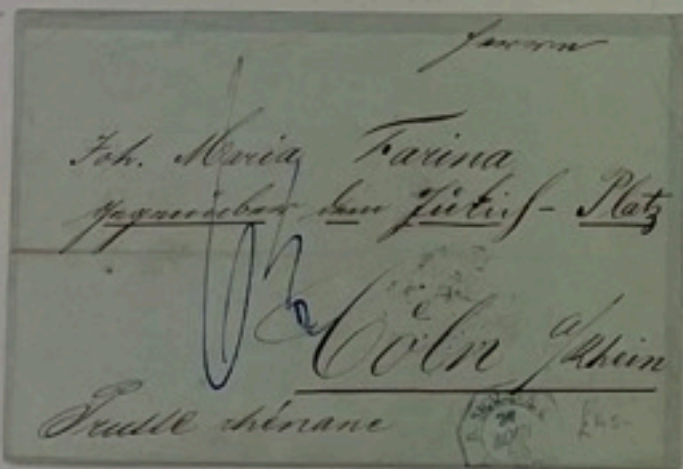 Herrn
Joh. Maria Farina
gegenüber dem Jülich-Platz
Cöln a/Rhein
Prusse rhénane
£45-